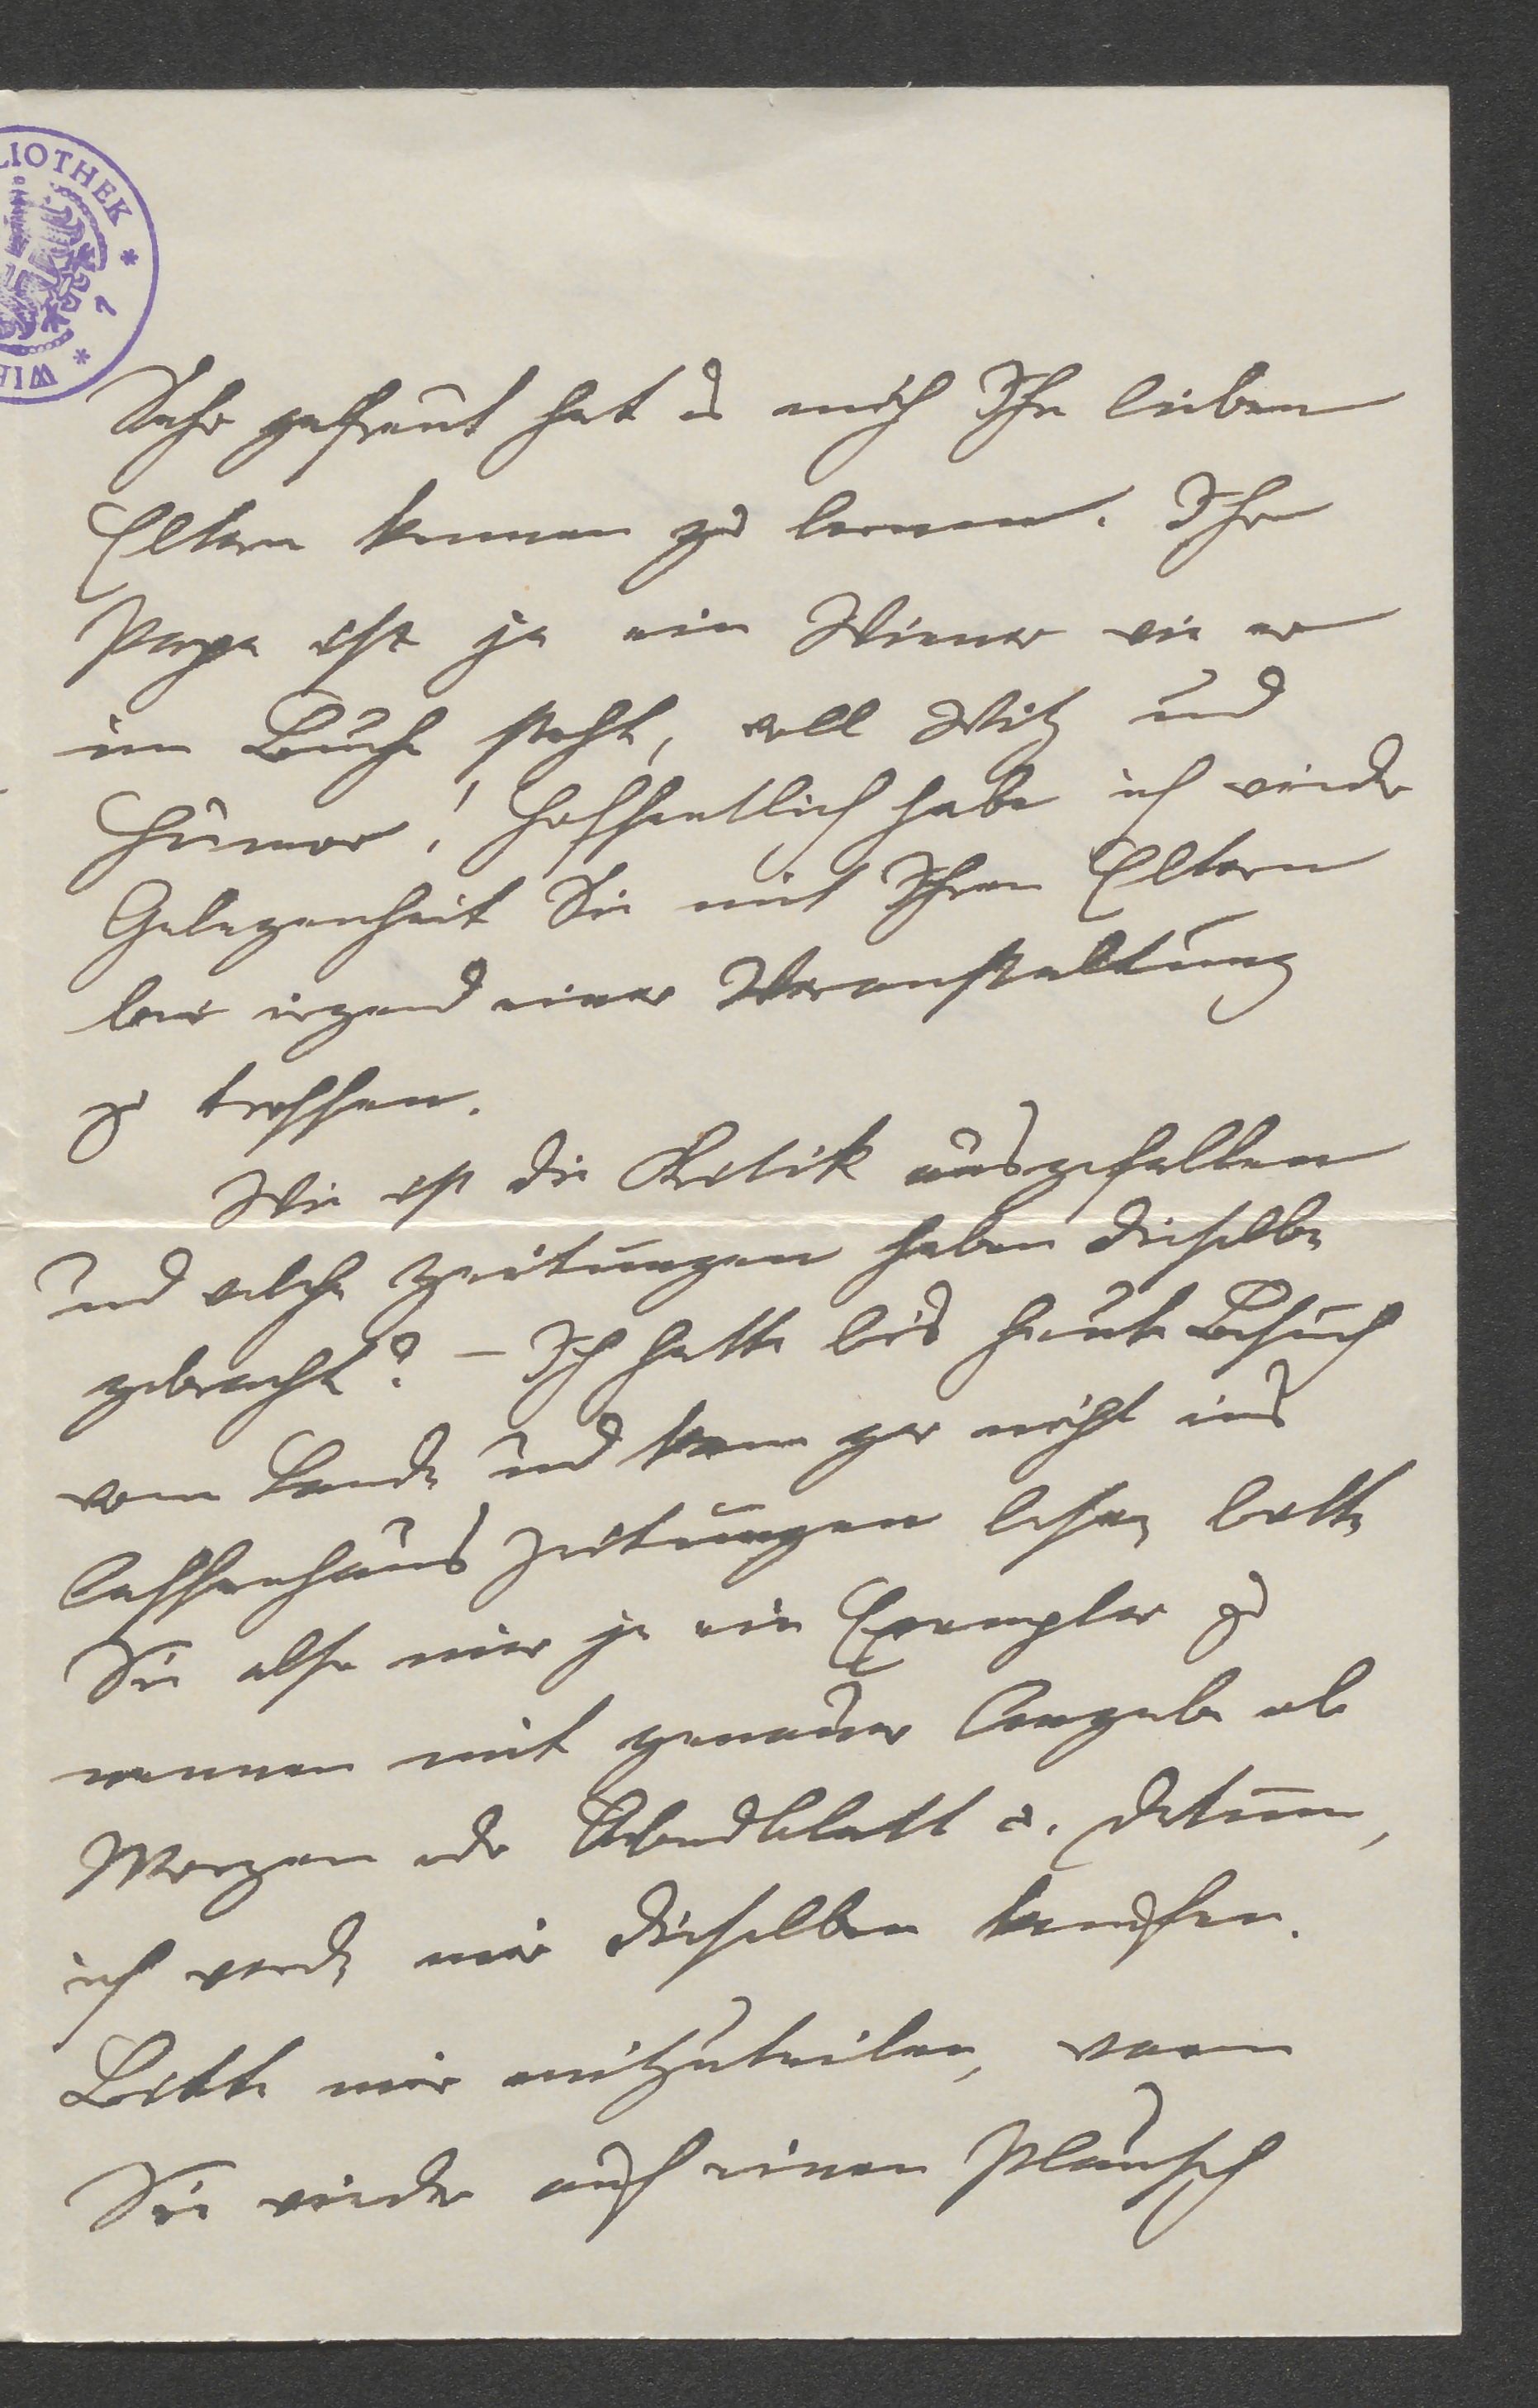 LIOTHEK *
7
* WIE
Sehr gefreut hat es mich Ihre lieben
Eltern kennen zu lernen. Ihr
Papa ist ja ein Wiener wie er
im Buche steht, voll Witz und
Humor! Hoffentlich habe ich wieder
Gelegenheit Sie mit Ihren Eltern
bei irgend einer Veranstaltung
zu treffen.
Wie ist die Kritik ausgefallen
und welche Zeitungen haben dieselbe
gebracht? – Ich hatte bis heute Besuch
vom Lande und kam gar nicht ins
Caffeehaus Zeitungen lesen, bitte
Sie also mir je ein Exemplar zu
nennen mit genauer Angabe ob
Morgen oder Abendblatt u. Datum,
ich werde mir dieselben kaufen.
Bitte mir mitzuteilen, wann
Sie wieder auf einen Plausch